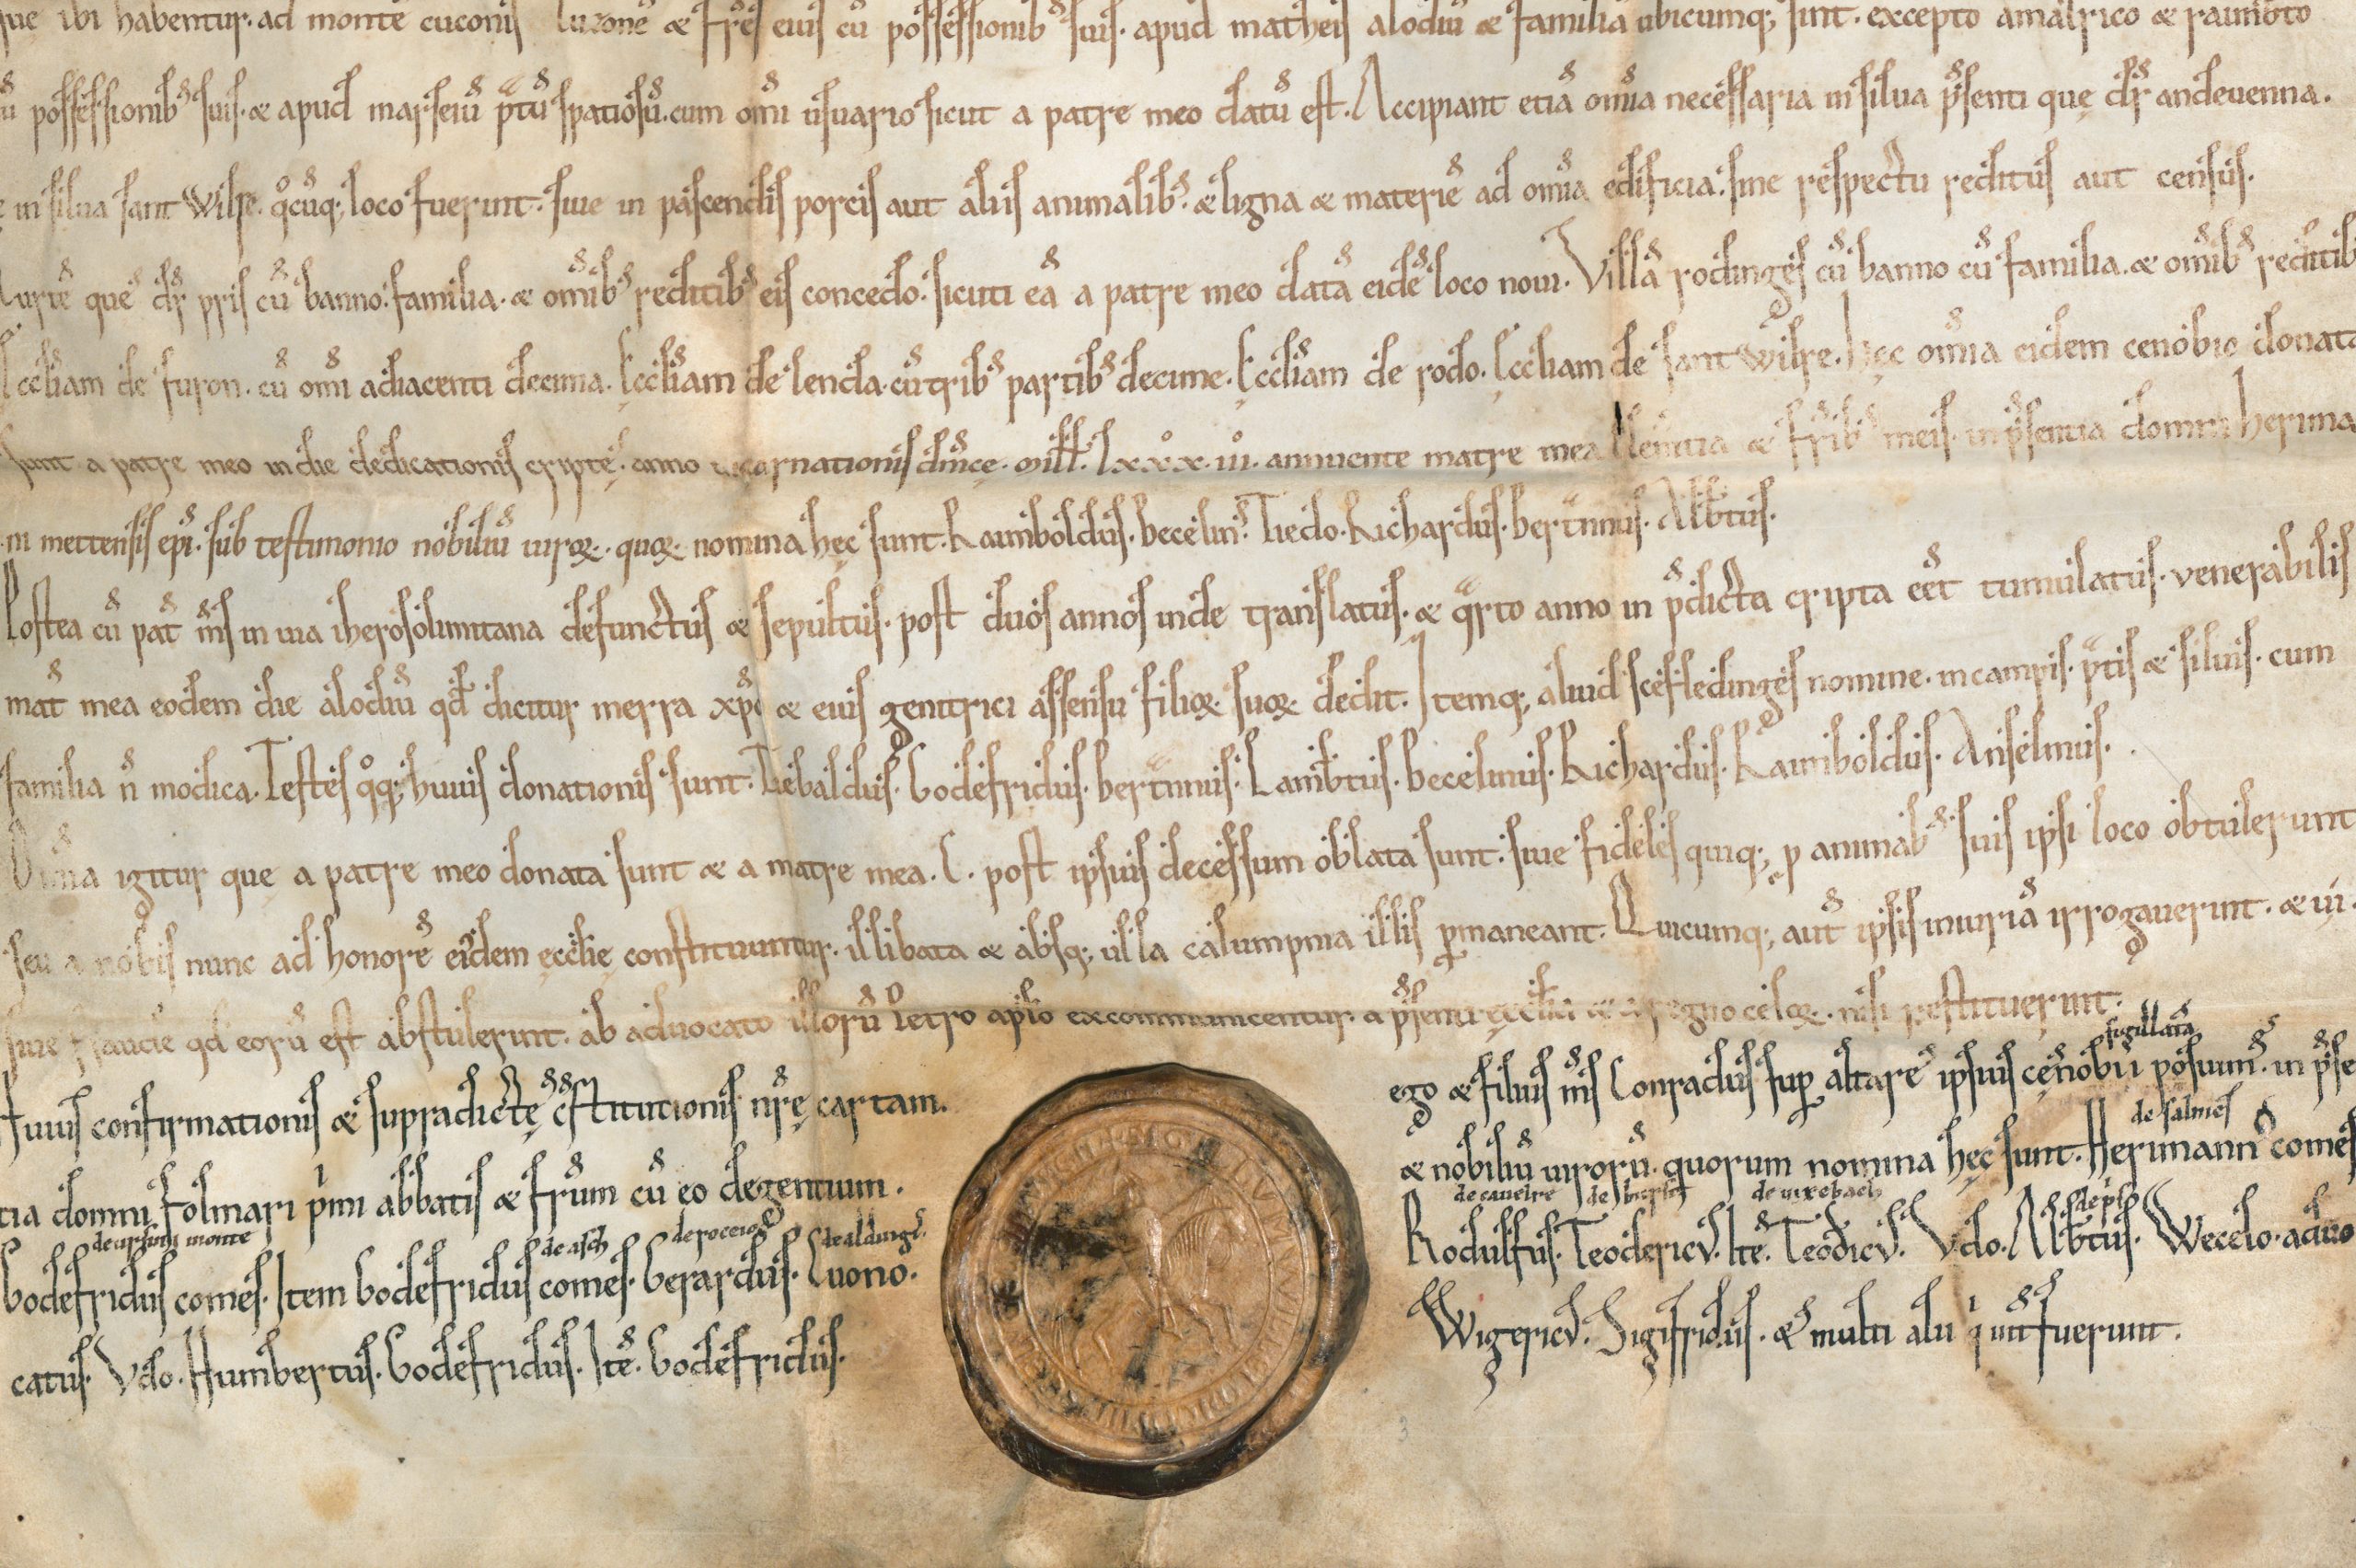 que ibi habentur. ad montē cuconis luzonē & frēs eius cū possessionibꝰ suis. apud matheis alodiū & familiā ubicumq; sint. excepto amalrico & raimb̄to
ū possessionibꝰ suis. & apud marseiū p̄tū spatiosū. cum om̄i usuario sicut a patre meo datū est. Accipiant etiā om̄ia necessaria in silua p̄senti quę dr̄ andeuenna.
in silua sant Wilre. q̊cūq; loco fuerint. siue in pascendis porcis aut aliis animalibꝰ. & ligna & materiē ad om̄ia edificia. sine respectu reditus aut census.
Curtē quę dr̄ pris cū banno. familia. & om̄ibꝰ reditibꝰ eis concedo. sicuti eā a patre meo datā eidē loco noui. Villā rodinges cū banno cū familia. & om̄ibꝰ reditib
Ęccl̄iam de furon. cū om̄i adiacenti decima. Ęccl̄iam de lenda. cū tribꝰ partibꝰ decime. Ęccl̄iam de rodo. Ęccl̄iam de sant wilre. Hęc om̄ia eidem cenobio donata
sunt a patre meo in die dedicationis criptę. anno incarnationis dn̄icę. mill̄. lxxx.iii. annuente matre mea & fr̄ibꝰ meis. in p̄sentia domni herima
ni mettensis ep̄i. sub testimonio nobiliū uiroꝝ. quoꝝ nomina hęc sunt. Raimboldus. becelinꝰ. Tiedo. Richardus. bert̄nnus. Alb̄tus.
Postea cū pat̄ m̄s in uia iherosolimitana defunctus & sepultus. post duos annos inde translatus. & q̄rto anno in p̄dicta cripta eēt tumulatus. venerabilis
mat̄ mea eodem die alodiū qd̄ dicitur merra xp̄o & eius genitrici assensu filioꝝ suoꝝ dedit. Itemq; aliud scefledinges nomine. in campis. p̄tis & siluis. cum
familia n̄ modica. Testes q̊q; huius donationis sunt. Tiebaldus. Godefridus. bert̄nnus. Lamb̄tus. becelinus. Richardus. Raimboldus. Anselmus.
Om̄ia igitur quę a patre meo donata sunt & a matre mea. C. post ipsius decessum oblata sunt. siue fideles quiq; p animabꝰ suis ipsi loco obtulerunt
seu a nobis nunc ad honorē eidem ęccl̄ię constituuntur. illibata & absq; ulla calumpnia illis ꝑmaneant. Quicumq; aut̄ ipsis iniuriā irrogauerint. & ui.
siue fraude qd eorū est abstulerint. ab aduocato illorū Petro ap̄lo excommunicentur. a p̄senti ęccl̄ia & a regno celoꝝ. nisi restituerint.
sugillatā
Huius confirmationis & supradictę c̄stitutionis nr̄ę cartam. ego & filius m̄s Conradus suꝑ altare ipsius cęnobii posuimꝰ. in p̄se
de salmes
tia domni folmari p̄mi abbatis & fr̄um cū eo degentium. & nobiliū uirorū. quorum nomina hęc sunt. Herimannꝰ comes
de asch de aldingꝰ. de cauelre de uixebach
Godefridus comes. Item Godefridus comes. Gerardus. Cuono. Rodulfus. Teodericꝰ. Itē. Teod̄icꝰ. Vdo. Alb̄tus. Wecelo. aduo
catus. Vdo. Humbertus. Godefridus. Itē. Godefridus. Wigericꝰ. Sigifridus. & multi alii q̄ int̄fuerunt.